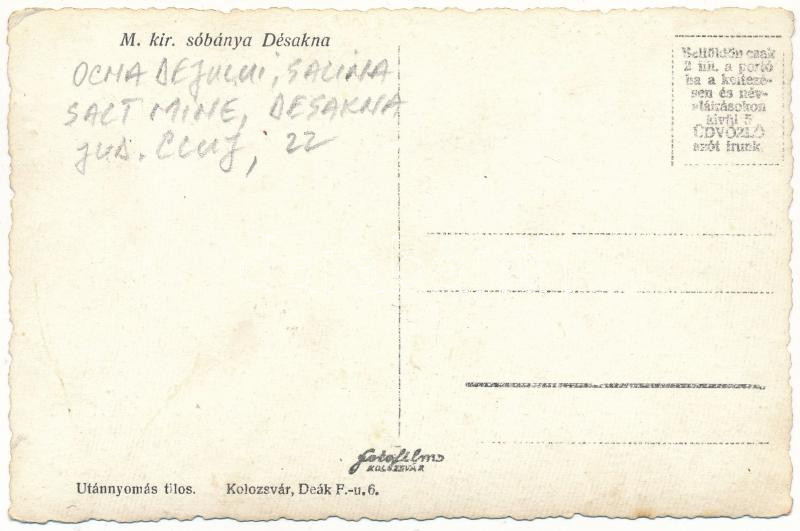 M. kir. sóbánya Désakna
OCNA DEJULUI, SALINA
SALT MINE, DESAKNA
JUD. CLUJ, 22
Belföldön csak
2 fill. a portó
ha a keltezé-
sen és név-
aláírásokon
kívül 5
ÜDVÖZLŐ
szót írunk.
fotofilm
KOLOZSVÁR
Utánnyomás tilos. Kolozsvár, Deák F.-u. 6.